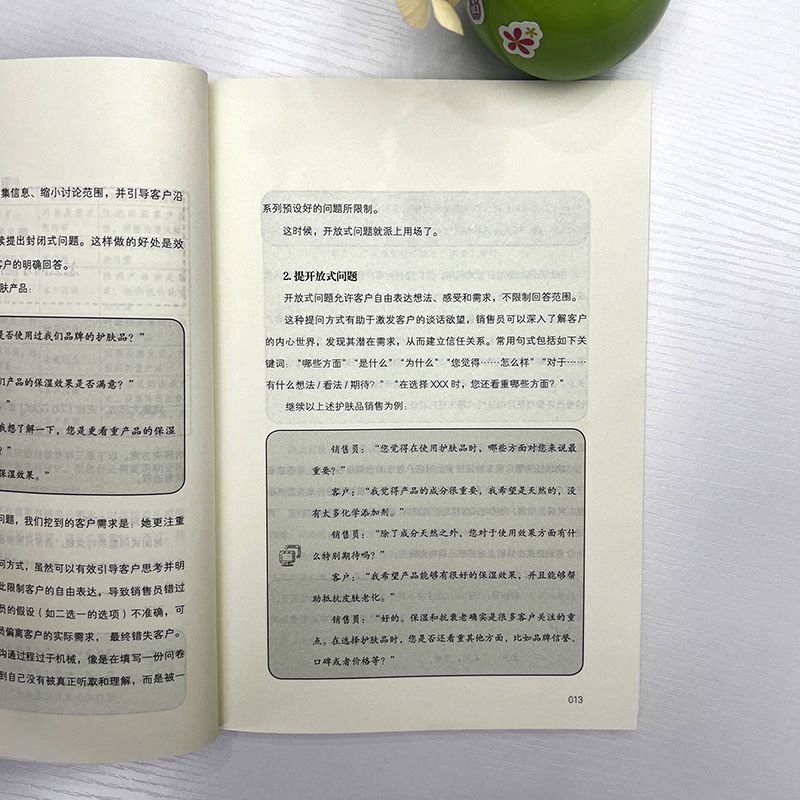 集信息、缩小讨论范围，并引导客户沿
续提出封闭式问题。这样做的好处是效
客户的明确回答。
肤产品：
是否使用过我们品牌的护肤品？”
们产品的保湿效果是否满意？”
。”
我想了解一下，您是更看重产品的保湿
？”
保湿效果。”
问题，我们挖到的客户需求是：她更注重
问方式，虽然可以有效引导客户思考并明
此限制客户的自由表达，导致销售员错过
员的假设（如二选一的选项）不准确，可
员偏离客户的实际需求，最终错失客户。
沟通过程过于机械，像是在填写一份问卷
到自己没有被真正听取和理解，而是被一
系列预设好的问题所限制。
这时候，开放式问题就派上用场了。
2. 提开放式问题
开放式问题允许客户自由表达想法、感受和需求，不限制回答范围。
这种提问方式有助于激发客户的谈话欲望，销售员可以深入了解客户
的内心世界，发现其潜在需求，从而建立信任关系。常用句式包括如下关
键词：“哪些方面”“是什么”“为什么”“您觉得……怎么样”“对于……
有什么想法/看法/期待？”“在选择XXX时，您还看重哪些方面？”
继续以上述护肤品销售为例：
销售员：“您觉得在使用护肤品时，哪些方面对您来说最
重要？”
客户：“我觉得产品的成分很重要，我希望是天然的，没
有太多化学添加剂。”
销售员：“除了成分天然之外，您对于使用效果方面有什
么特别期待吗？”
客户：“我希望产品能够有很好的保湿效果，并且能够帮
助抵抗皮肤老化。”
销售员：“好的。保湿和抗衰老确实是很多客户关注的重
点。在选择护肤品时，您是否还看重其他方面，比如品牌信誉、
口碑或者价格等？”
013